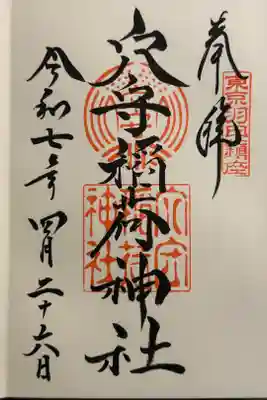 奉拝
東京羽田鎮座
穴守稲荷神社
穴守稲荷神社
令和七年 四月二十六日